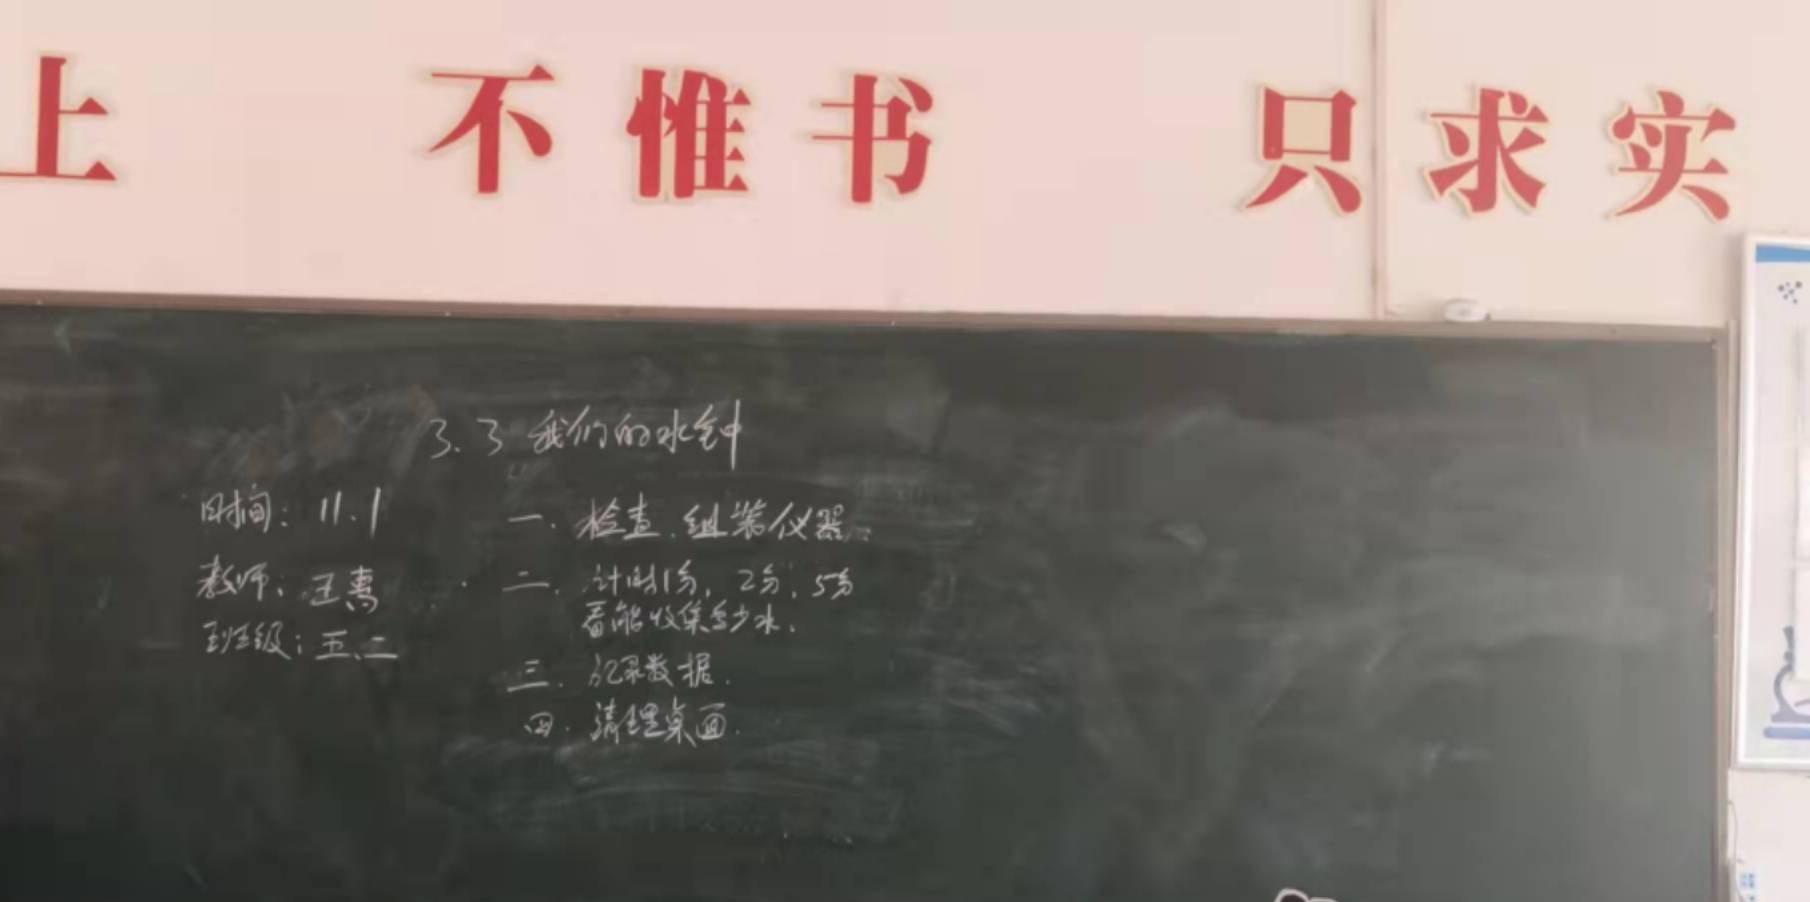 上 不惟书 只求实
3.3 我们的水钟
时间：11.1
教师：王惠
班级：五.二
一. 检查.组装仪器.
二. 计时1分，2分，5分
看能收集多少水.
三. 记录数据.
四. 清理桌面.